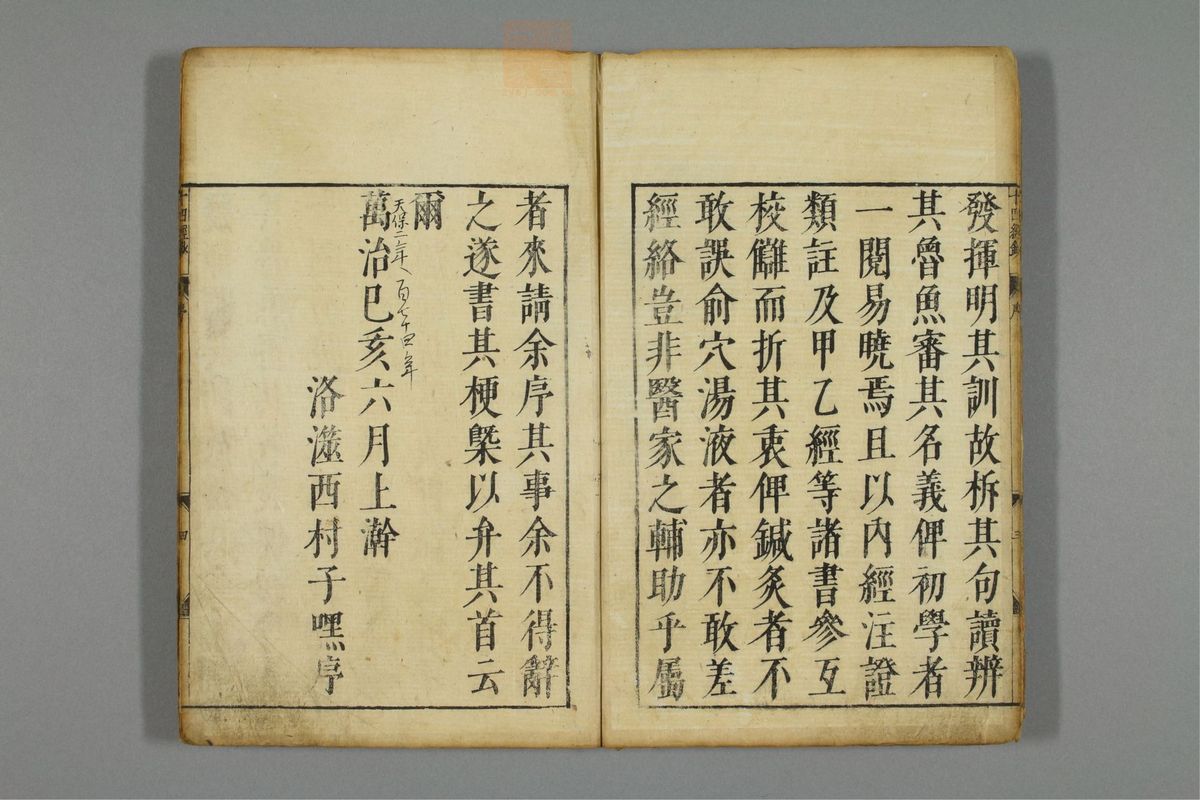 發揮明其訓故析其句讀辨
其魯魚審其名義俾初學者
一閱易曉焉且以內經注證
類註及甲乙經等諸書參互
校讎而折其衷俾鍼灸者不
敢誤俞穴湯液者亦不敢差
經絡豈非醫家之輔助乎屬
者來請余序其事余不得辭
之遂書其梗槩以弁其首云
爾
天保二年 百七十四年
萬治己亥六月上澣
洛滋西村子嘿序